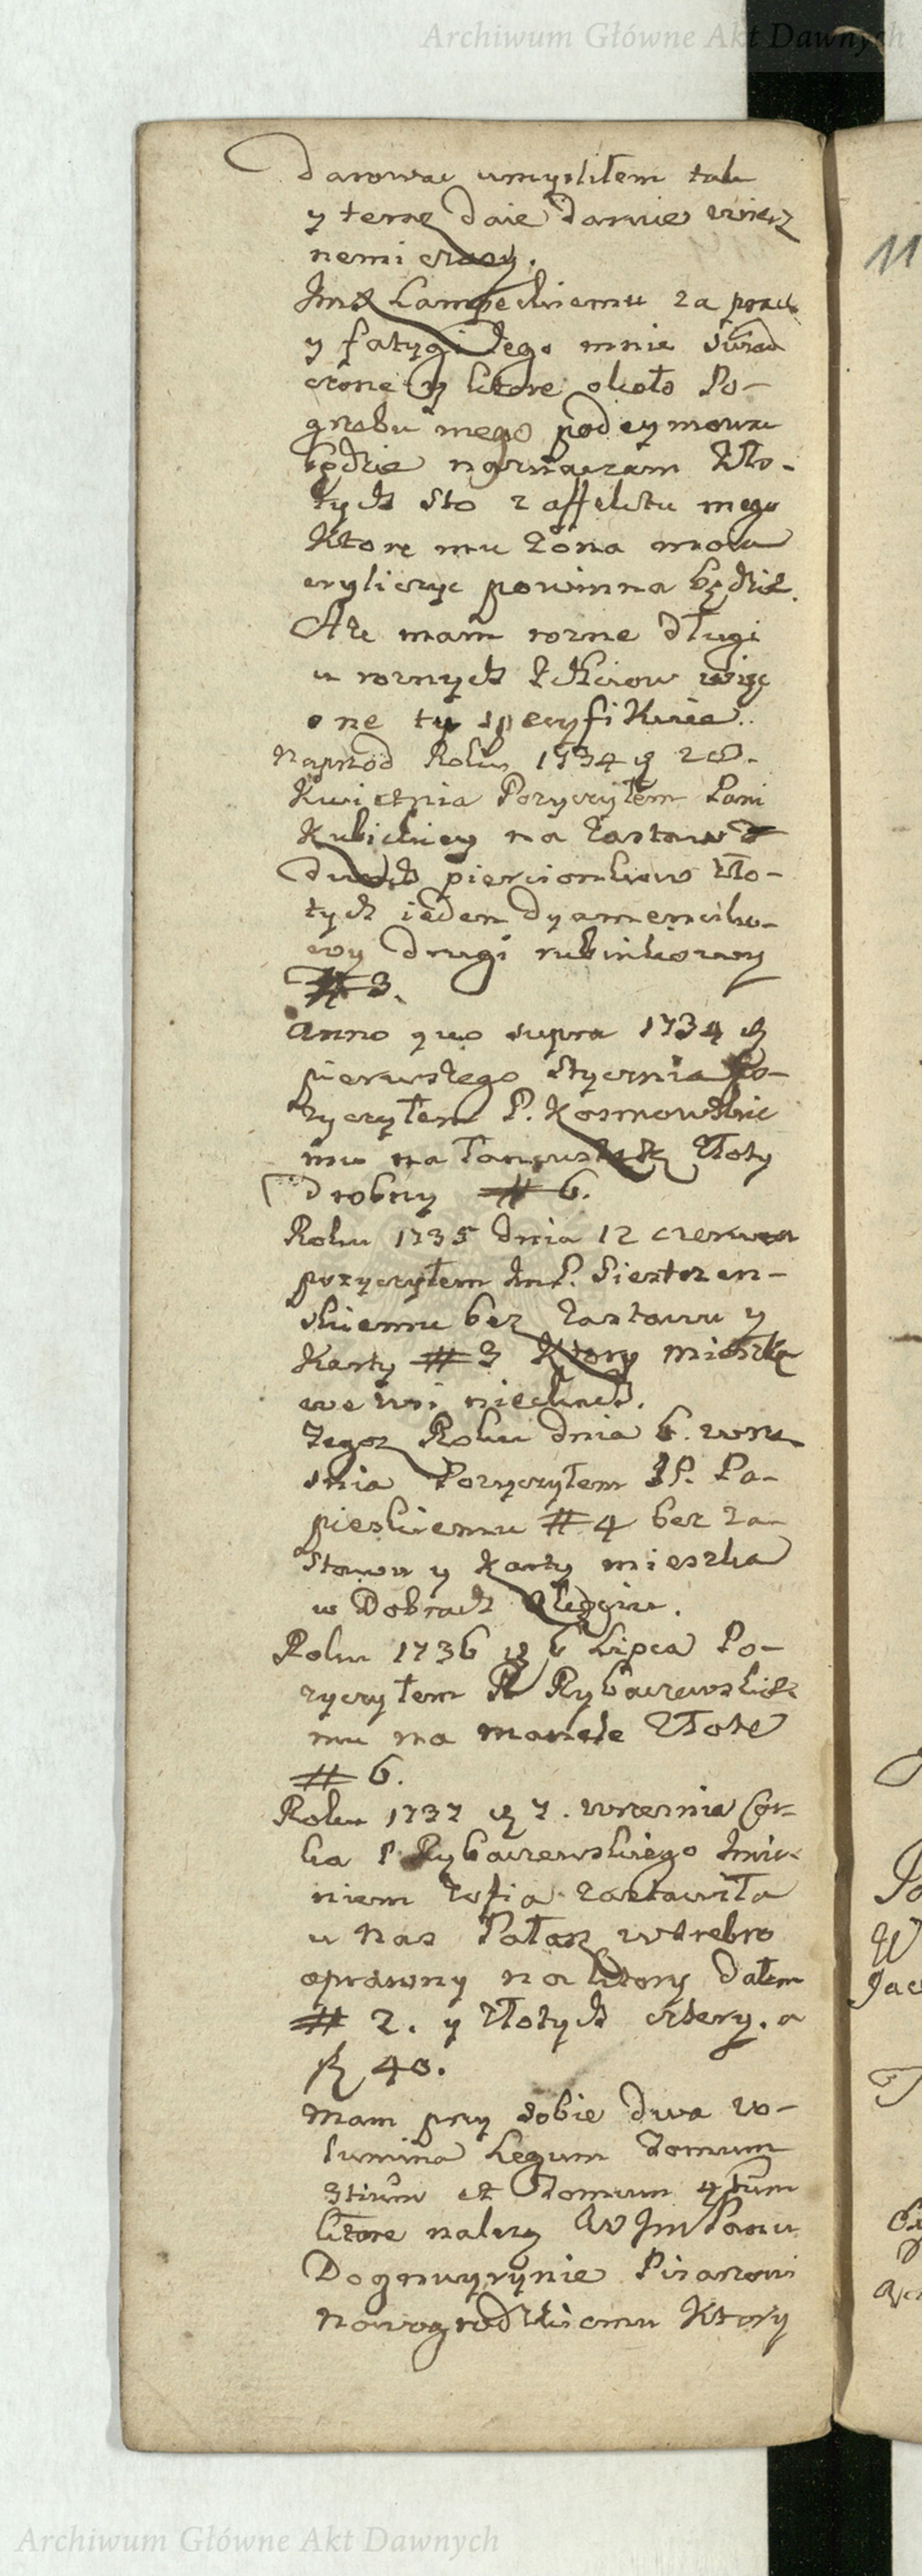 Archiwum Główne Akt Dawnych
darować umysliłem tak
y teraz daię daruię wiecz
nemi czasy.
Jmć Lampeckiemu za prace
y fatygi Jego mnie świad
czone y ktore około Po-
grzebu mego podeymować
będzie naznaczam Zło-
tych sto z affektu mego
Ktore mu Zona moia
wyliczyc powinna będzie.
Ale mam rozne długi
u roznych więc
one tu specyfikuię.
Naprzod Roku 1734 d 20.
Kwietnia Pozyczyłem Pani
Kubickiey na Zastaw
dwuch pierscionkow Zło-
tych ieden dyamenciko-
wy drugi rubinkowy
# 3.
Anno quo supra 1734 d
pierwszego Stycznia Po-
zyczyłem P. Kosmowskie
mu na Łancuszek Złoty
drobny # 6.
Roku 1735 dnia 12 czerwca
pozyczyłem Jm P.
skiemu bez Zastawu y
Karty # 3 Ktory mieszka
we wsi
Tegoz Roku dnia 6. wrze
snia Pozyczyłem JP. Pa-
pieskiemu # 4 bez za
stawu y karty mieszka
w Dobrach
Roku 1736 d 6 Lipca Po-
zyczyłem P Rybaczewskie
mu na manele Złote
# 6.
Roku 1737 d 7. wrzesnia Cor-
ka P Rybaczewskiego Jmie
niem Zofia zastawiła
u nas Pałasz w srebro
oprawny na ktory dałem
# 2. y Złotych cztery. a
40.
Mam przy sobie dwa vo-
lumina Legum Tomum
3tium et Tomum 4tum
ktore nalezą W Jm Panu
Pisarzowi
Nowogrodzkiemu Ktory
11
Jac
Archiwum Główne Akt Dawnych